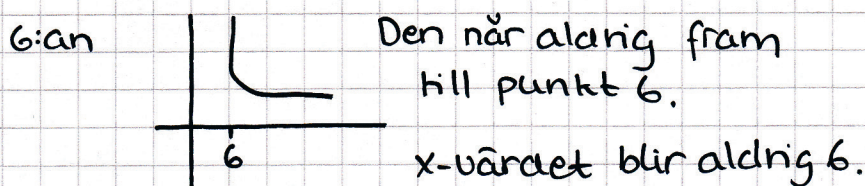 6:an
Den når aldrig fram
till punkt 6.
6
x-värdet blir aldrig 6.